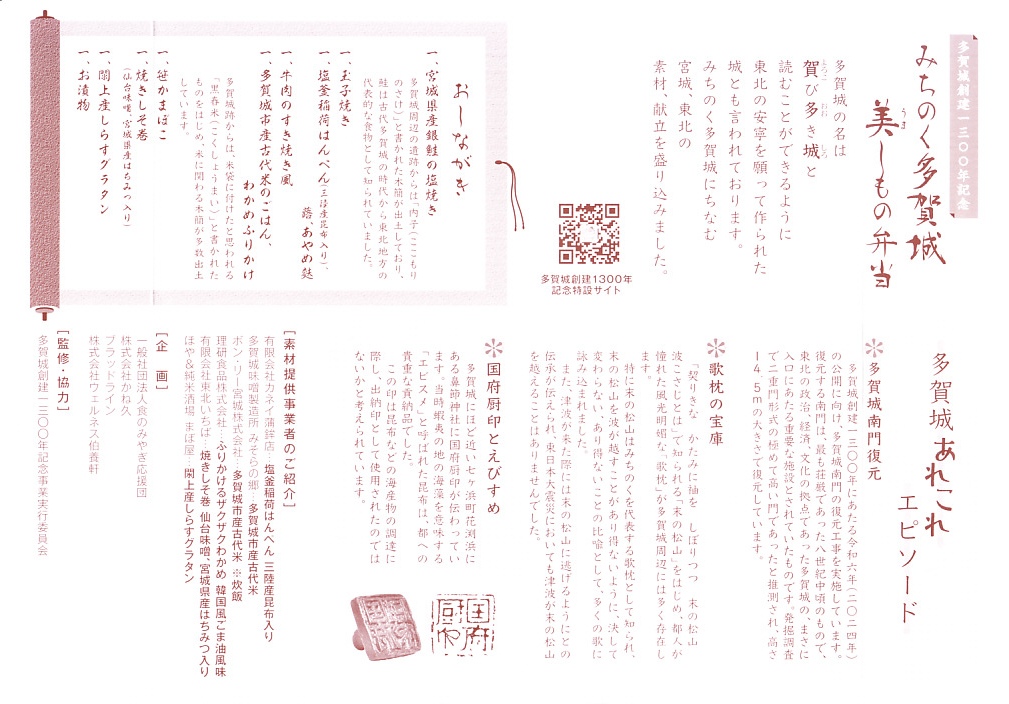 多賀城創建一三〇〇年記念
みちのく多賀城
美しもの弁当
うま
多賀城の名は
賀び多き城と
よろこ おお しろ
読むことができるように
東北の安寧を願って作られた
城とも言われております。
みちのく多賀城にちなむ
宮城、東北の
素材、献立を盛り込みました。
多賀城創建1300年
記念特設サイト
おしながき
一、宮城県産銀鮭の塩焼き
多賀城周辺の遺跡からは「内子(ここもり
のさけ)」と書かれた木簡が出土しており、
鮭は古代多賀城の時代から東北地方の
代表的な食物として知られていました。
一、玉子焼き
一、塩釜稲荷はんぺん(三陸産昆布入り)、
蕗、あやめ麩
一、牛肉のすき焼き風
一、多賀城市産古代米のごはん、
わかめふりかけ
多賀城跡からは、米袋に付けたと思われる
「黒舂米(こくしょうまい)」と書かれた
ものをはじめ、米に関わる木簡が多数出土
しています。
一、笹かまぼこ
一、焼きしそ巻
(仙台味噌、宮城県産はちみつ入り)
一、閖上産しらすグラタン
一、お漬物
多賀城あれこれ
エピソード
多賀城南門復元
多賀城創建一三〇〇年にあたる令和六年(二〇二四年)
の公開に向け、多賀城南門の復元工事を実施しています。
復元する南門は、最も荘厳であった八世紀中頃のもので、
東北の政治、経済、文化の拠点であった多賀城の、まさに
入口にあたる重要な施設とされていたものです。発掘調査
で二重門形式の極めて高い門であったと推測され、高さ
14.5mの大きさで復元しています。
歌枕の宝庫
「契りきな かたみに袖を しぼりつつ 末の松山
波こさじとは」で知られる「末の松山」をはじめ、都人が
憧れた風光明媚な「歌枕」が多賀城周辺には多く存在し
ます。
特に末の松山はみちのくを代表する歌枕として知られ、
末の松山を波が越すことがあり得ないように、決して
変わらない、あり得ないことの比喩として、多くの歌に
詠み込まれました。
また、津波が来た際には末の松山に逃げるようにとの
伝承が伝えられ、東日本大震災においても津波が末の松山
を越えることはありませんでした。
国府厨印とえびすめ
多賀城にほど近い七ヶ浜町花渕浜に
ある鼻節神社に国府厨印が伝わってい
ます。当時蝦夷の地の海藻を意味する
「エビスメ」と呼ばれた昆布は、都への
貴重な貢納品でした。
この印は昆布などの海産物の調達に
際し、出納印として使用されたのでは
ないかと考えられています。
国府
厨印
[素材提供事業者のご紹介]
有限会社カネイ蒲鉾店…塩釜稲荷はんぺん 三陸産昆布入り
多賀城味噌製造所 みそらの郷…多賀城市産古代米
ボン・リー宮城株式会社…多賀城市産古代米 ※炊飯
理研食品株式会社…ふりかけるザクザクわかめ 韓国風ごま油風味
有限会社東北いちば…焼きしそ巻 仙台味噌、宮城県産はちみつ入り
ほや&純米酒場 まぼ屋…閖上産しらすグラタン
[企 画]
一般社団法人食のみやぎ応援団
株式会社かね久
ブラッドライン
株式会社ウェルネス伯養軒
[監修・協力]
多賀城創建一三〇〇年記念事業実行委員会